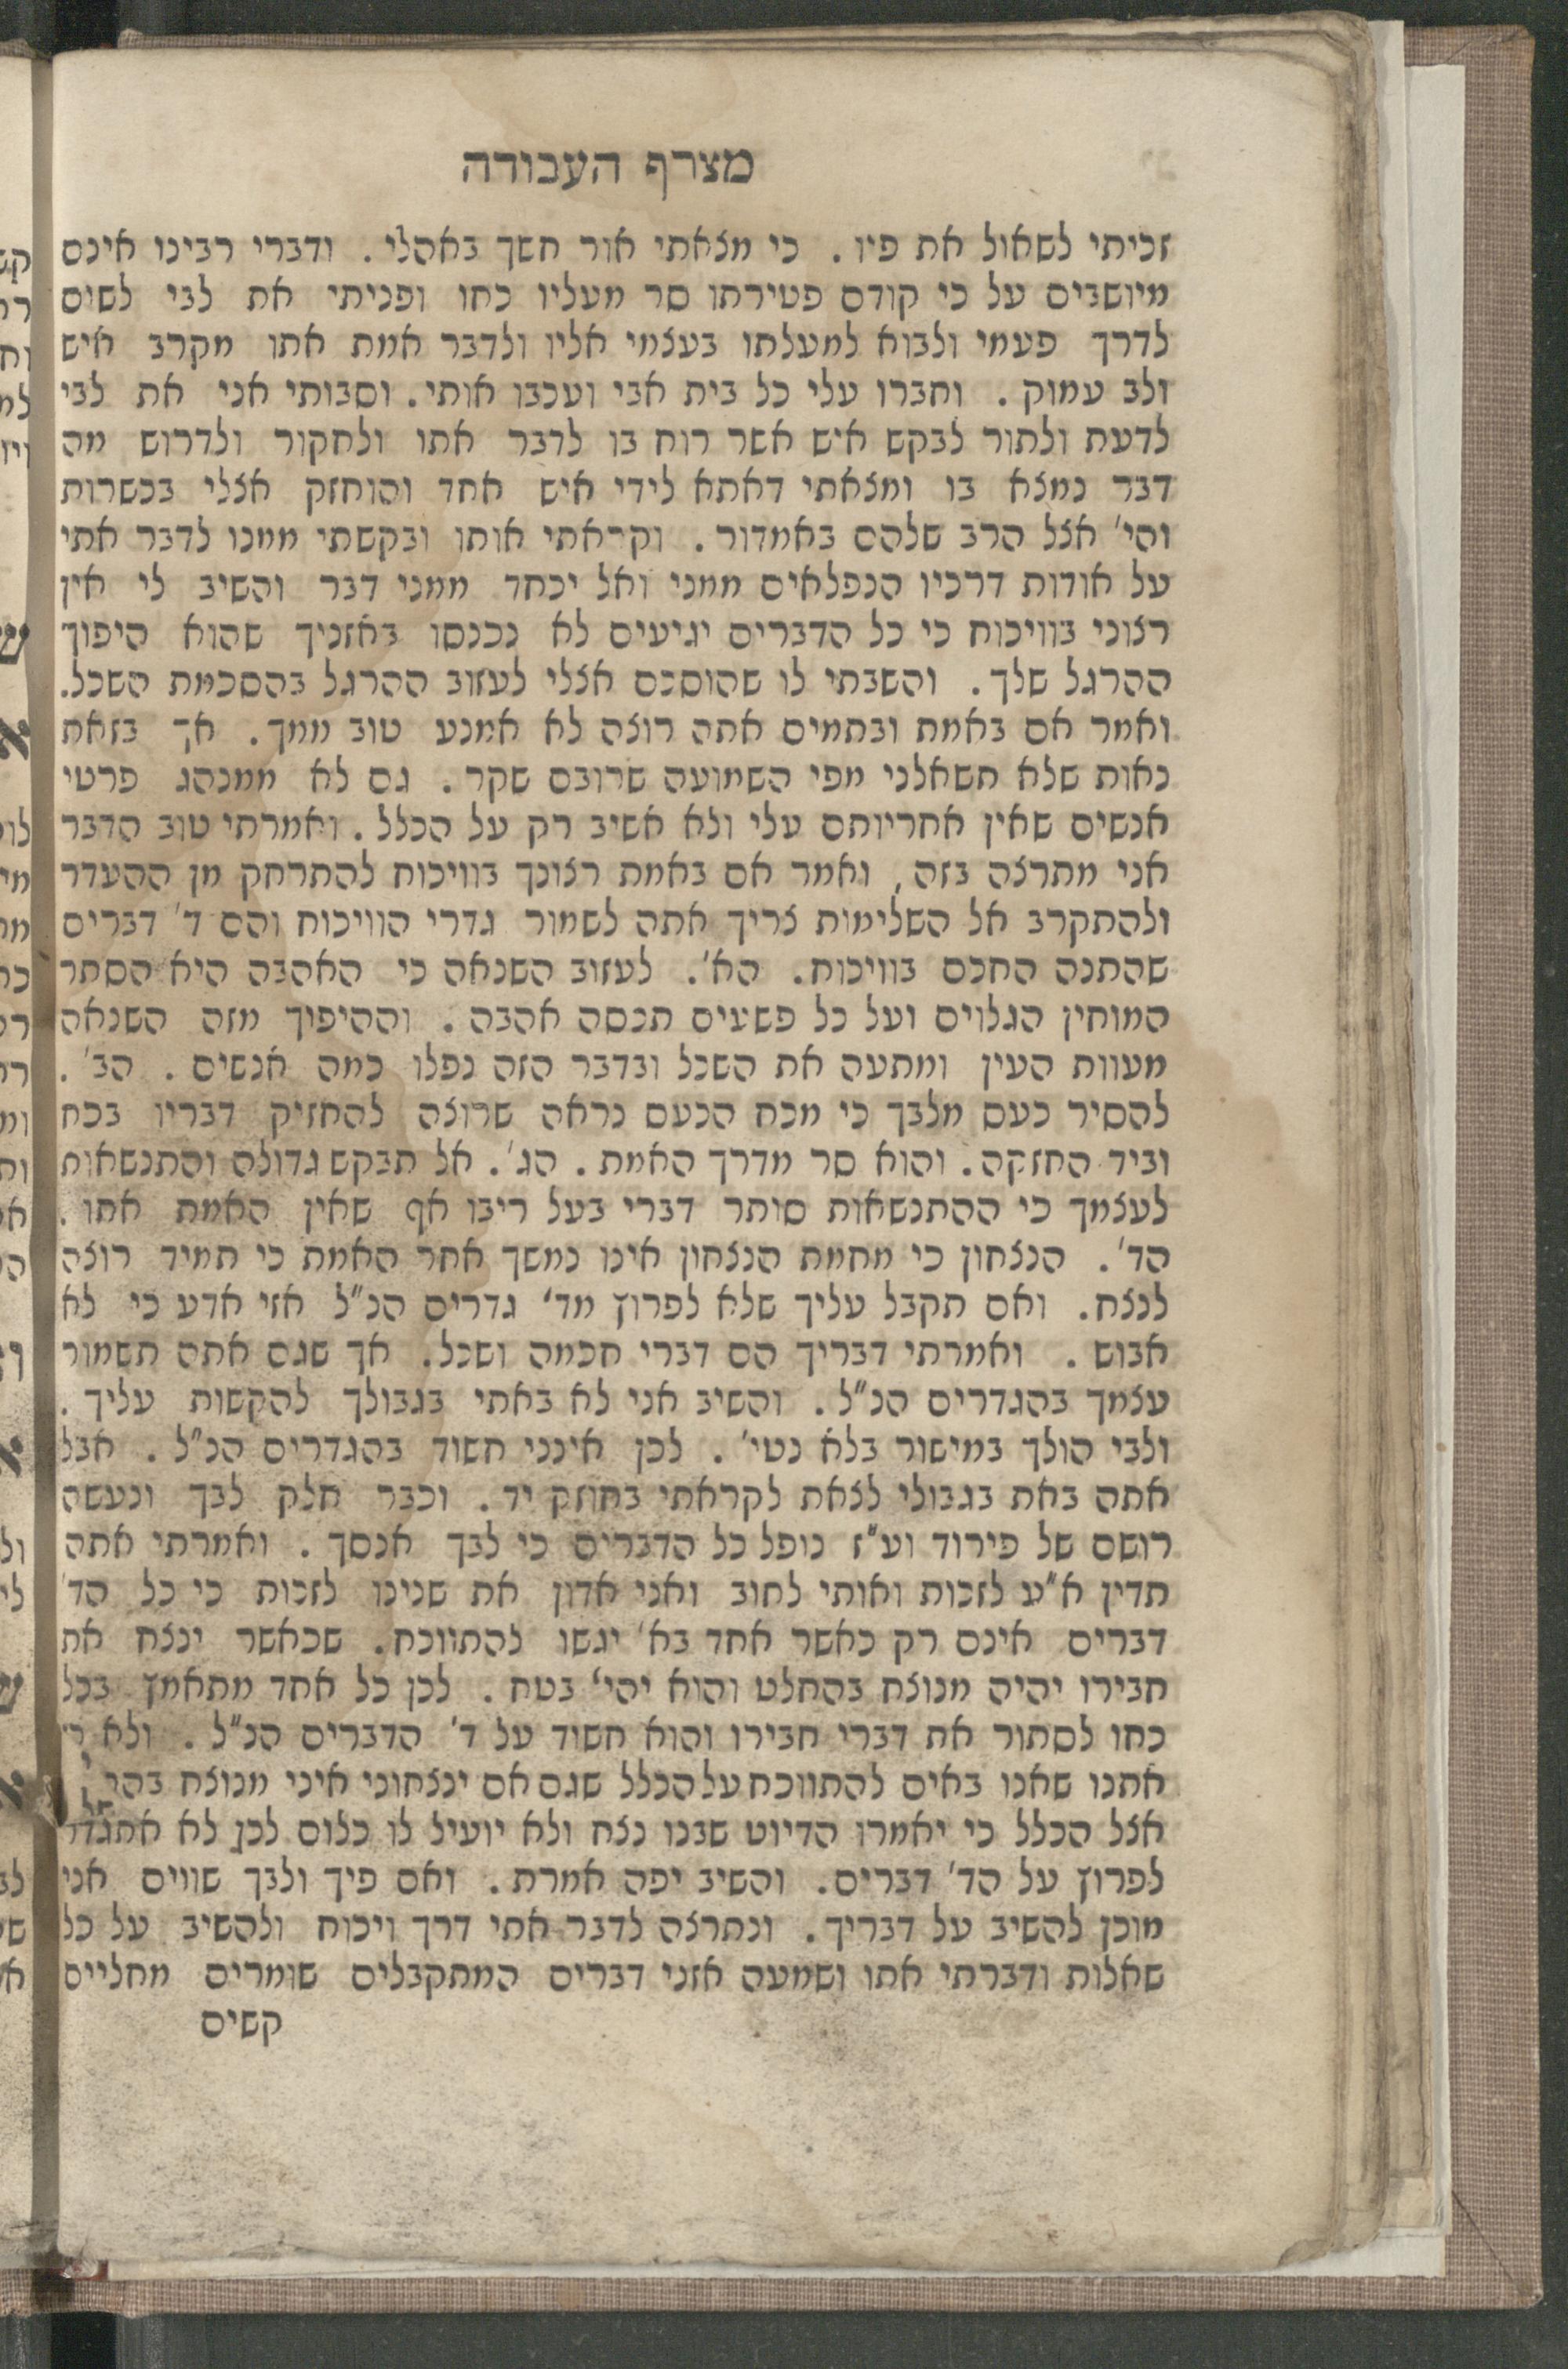 מצרף העבודה
זכיתי לשאול את פיו. כי מצאתי אור חשך באהלי. ודברי רבינו אינם
מיושבים על כי קודם פטירתו סר מעליו כחו ופניתי את לבי לשום
לדרך פעמי ולבוא למעלתו בעצמי אליו ולדבר אמת אתו מקרב איש
ולב עמוק. וחברו עלי כל בית אבי ועכבו אותי. וסבותי אני את לבי
לדעת ולתור לבקש איש אשר רוח בו לדבר אתו ולחקור ולדרוש מה
דבר נמצא בו ומצאתי דאתא לידי איש אחד והוחזק אצלי בכשרות
והי' אצל הרב שלהם באמדור. וקראתי אותו ובקשתי ממנו לדבר אתי
על אודות דרכיו הנפלאים ממני ואל יכחד ממני דבר והשיב לי אין
רצוני בוויכוח כי כל הדברים יגיעים לא נכנסו באזניך שהוא היפוך
ההרגל שלך. והשבתי לו שהוסכם אצלי לעזוב ההרגל בהסכמת השכל.
ואמר אם באמת ובתמים אתה רוצה לא אמנע טוב ממך. אך בזאת
נאות שלא תשאלני מפי השמועה שרובם שקר. גם לא ממנהג פרטי
אנשים שאין אחריותם עלי ולא אשיב רק על הכלל. ואמרתי טוב הדבר
אני מתרצה בזה, ואמר אם באמת רצונך בוויכוח להתרחק מן ההעדר
ולהתקרב אל השלימות צריך אתה לשמור גדרי הוויכוח והם ד' דברים
שהתנה החכם בוויכוח. הא'. לעזוב השנאה כי האהבה היא הסתר
המוחין הגלוים ועל כל פשעים תכסה אהבה. וההיפוך מזה השנאה
מעוות העין ומתעה את השכל ובדבר הזה נפלו כמה אנשים. הב'.
להסיר כעס מלבך כי מכח הכעס נראה שרוצה להחזיק דבריו בכח
וביד החזקה. והוא סר מדרך האמת. הג'. אל תבקש גדולה והתנשאות
לעצמך כי ההתנשאות סותר דברי בעל ריבו אף שאין האמת אתו.
הד'. הנצחון כי מחמת הנצחון אינו נמשך אחר האמת כי תמיד רוצה
לנצח. ואם תקבל עליך שלא לפרוץ מד' גדרים הנ"ל אזי אדע כי לא
אבוש. ואמרתי דבריך הם דברי חכמה ושכל. אך שגם אתה תשמור
עצמך בהגדרים הנ"ל. והשיב אני לא באתי בגבולך להקשות עליך.
ולבי הולך במישור בלא נטי'. לכן אינני חשוד בהגדרים הנ"ל. אבל
אתה באת בגבולי לצאת לקראתי בחוזק יד. וכבר חלק לבך ונעשה
רושם של פירוד וע"ז נופל כל הדברים כי לבך אנסך. ואמרתי אתה
תדין א"ע לזכות ואותי לחוב ואני אדון את שנינו לזכות כי כל הד'
דברים אינם רק כאשר אחד בא' יגשו להתווכח. שכאשר ינצח את
חבירו יהיה מנוצח בהחלט והוא יהי' בטח. לכן כל אחד מתאמץ בכל
כחו לסתור את דברי חבירו והוא חשוד על ד' הדברים הנ"ל. ולא
אתנו שאנו באים להתווכח על הכלל שגם אם ינצחוני איני מנוצח
אצל הכלל כי יאמרו הדיוט שבנו נצח ולא יועיל לו כלום לכן לא
לפרוץ על הד' דברים. והשיב יפה אמרת. ואם פיך ולבך שווים אני
מוכן להשיב על דבריך. ונתרצה לדבר אתי דרך ויכוח ולהשיב על כל
שאלות ודברתי אתו ושמעה אזני דברים המתקבלים שומרים מחליים
קשים